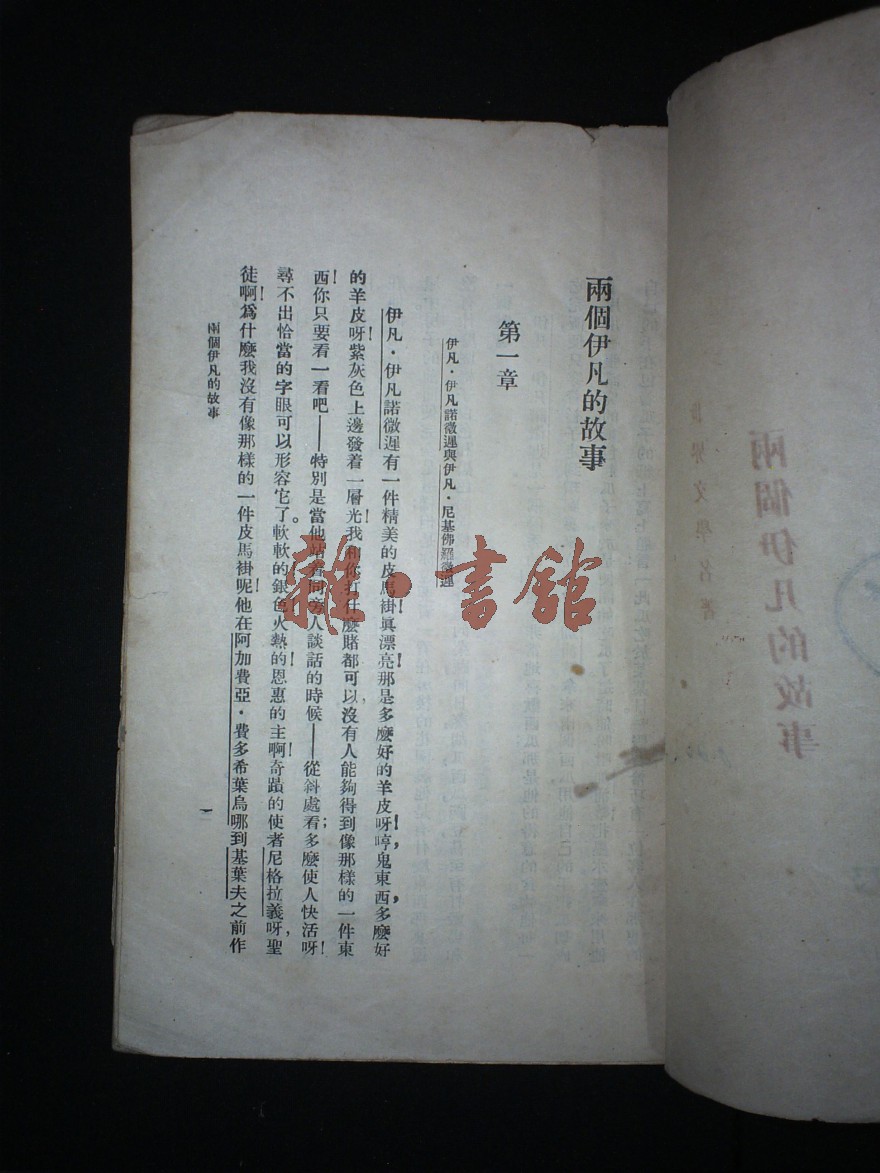 兩個伊凡的故事
第一章
伊凡·伊凡諾微遲與伊凡·尼基佛羅微遲
伊凡·伊凡諾微遲有一件精美的皮馬褂!真漂亮!那是多麼好的羊皮呀!哼,鬼東西,多麼好
的羊皮呀!紫灰色上邊發着一層光!我和你打什麼賭都可以,沒有人能夠得到像那樣的一件東
西!你只要看一看吧——特別是當他站着同旁人談話的時候——從斜處看:多麼使人快活呀!
尋不出恰當的字眼可以形容它了。軟軟的銀色!火熱的!恩惠的主啊!奇蹟的使者尼格拉義呀,聖
徒啊!爲什麼我沒有像那樣的一件皮馬褂呢!他在阿加費亞·費多希葉烏哪到基葉夫之前作
兩個伊凡的故事
一
世界文學名著
兩個伊凡的故事
雜·書館